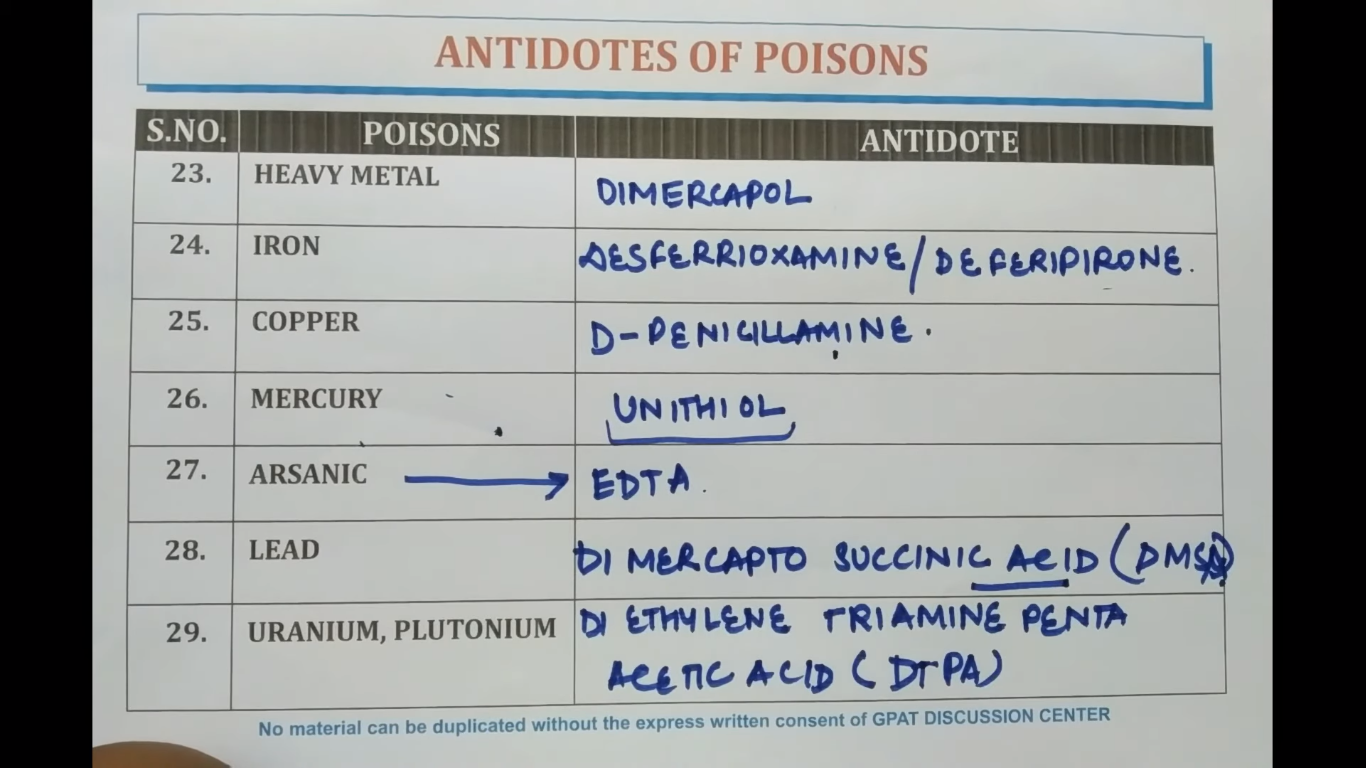 ANTIDOTES OF POISONS
S.NO. POISONS ANTIDOTE
23. HEAVY METAL DIMERCAPOL
24. IRON DESFERRIOXAMINE/DEFERIPIRONE.
25. COPPER D-PENICILLAMINE.
26. MERCURY UNITHIOL
27. ARSANIC → EDTA.
28. LEAD DI MERCAPTO SUCCINIC ACID (DMSA)
29. URANIUM, PLUTONIUM DI ETHYLENE TRIAMINE PENTA
ACETIC ACID (DTPA)
No material can be duplicated without the express written consent of GPAT DISCUSSION CENTER